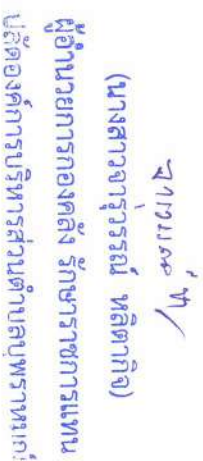 (นางสาวจารุวรรณ์ หลิดกิจ)
ผู้อำนวยการกองคลัง รักษาราชการแทน
ปลัดองค์การบริหารส่วนตำบลบุพราหมณ์